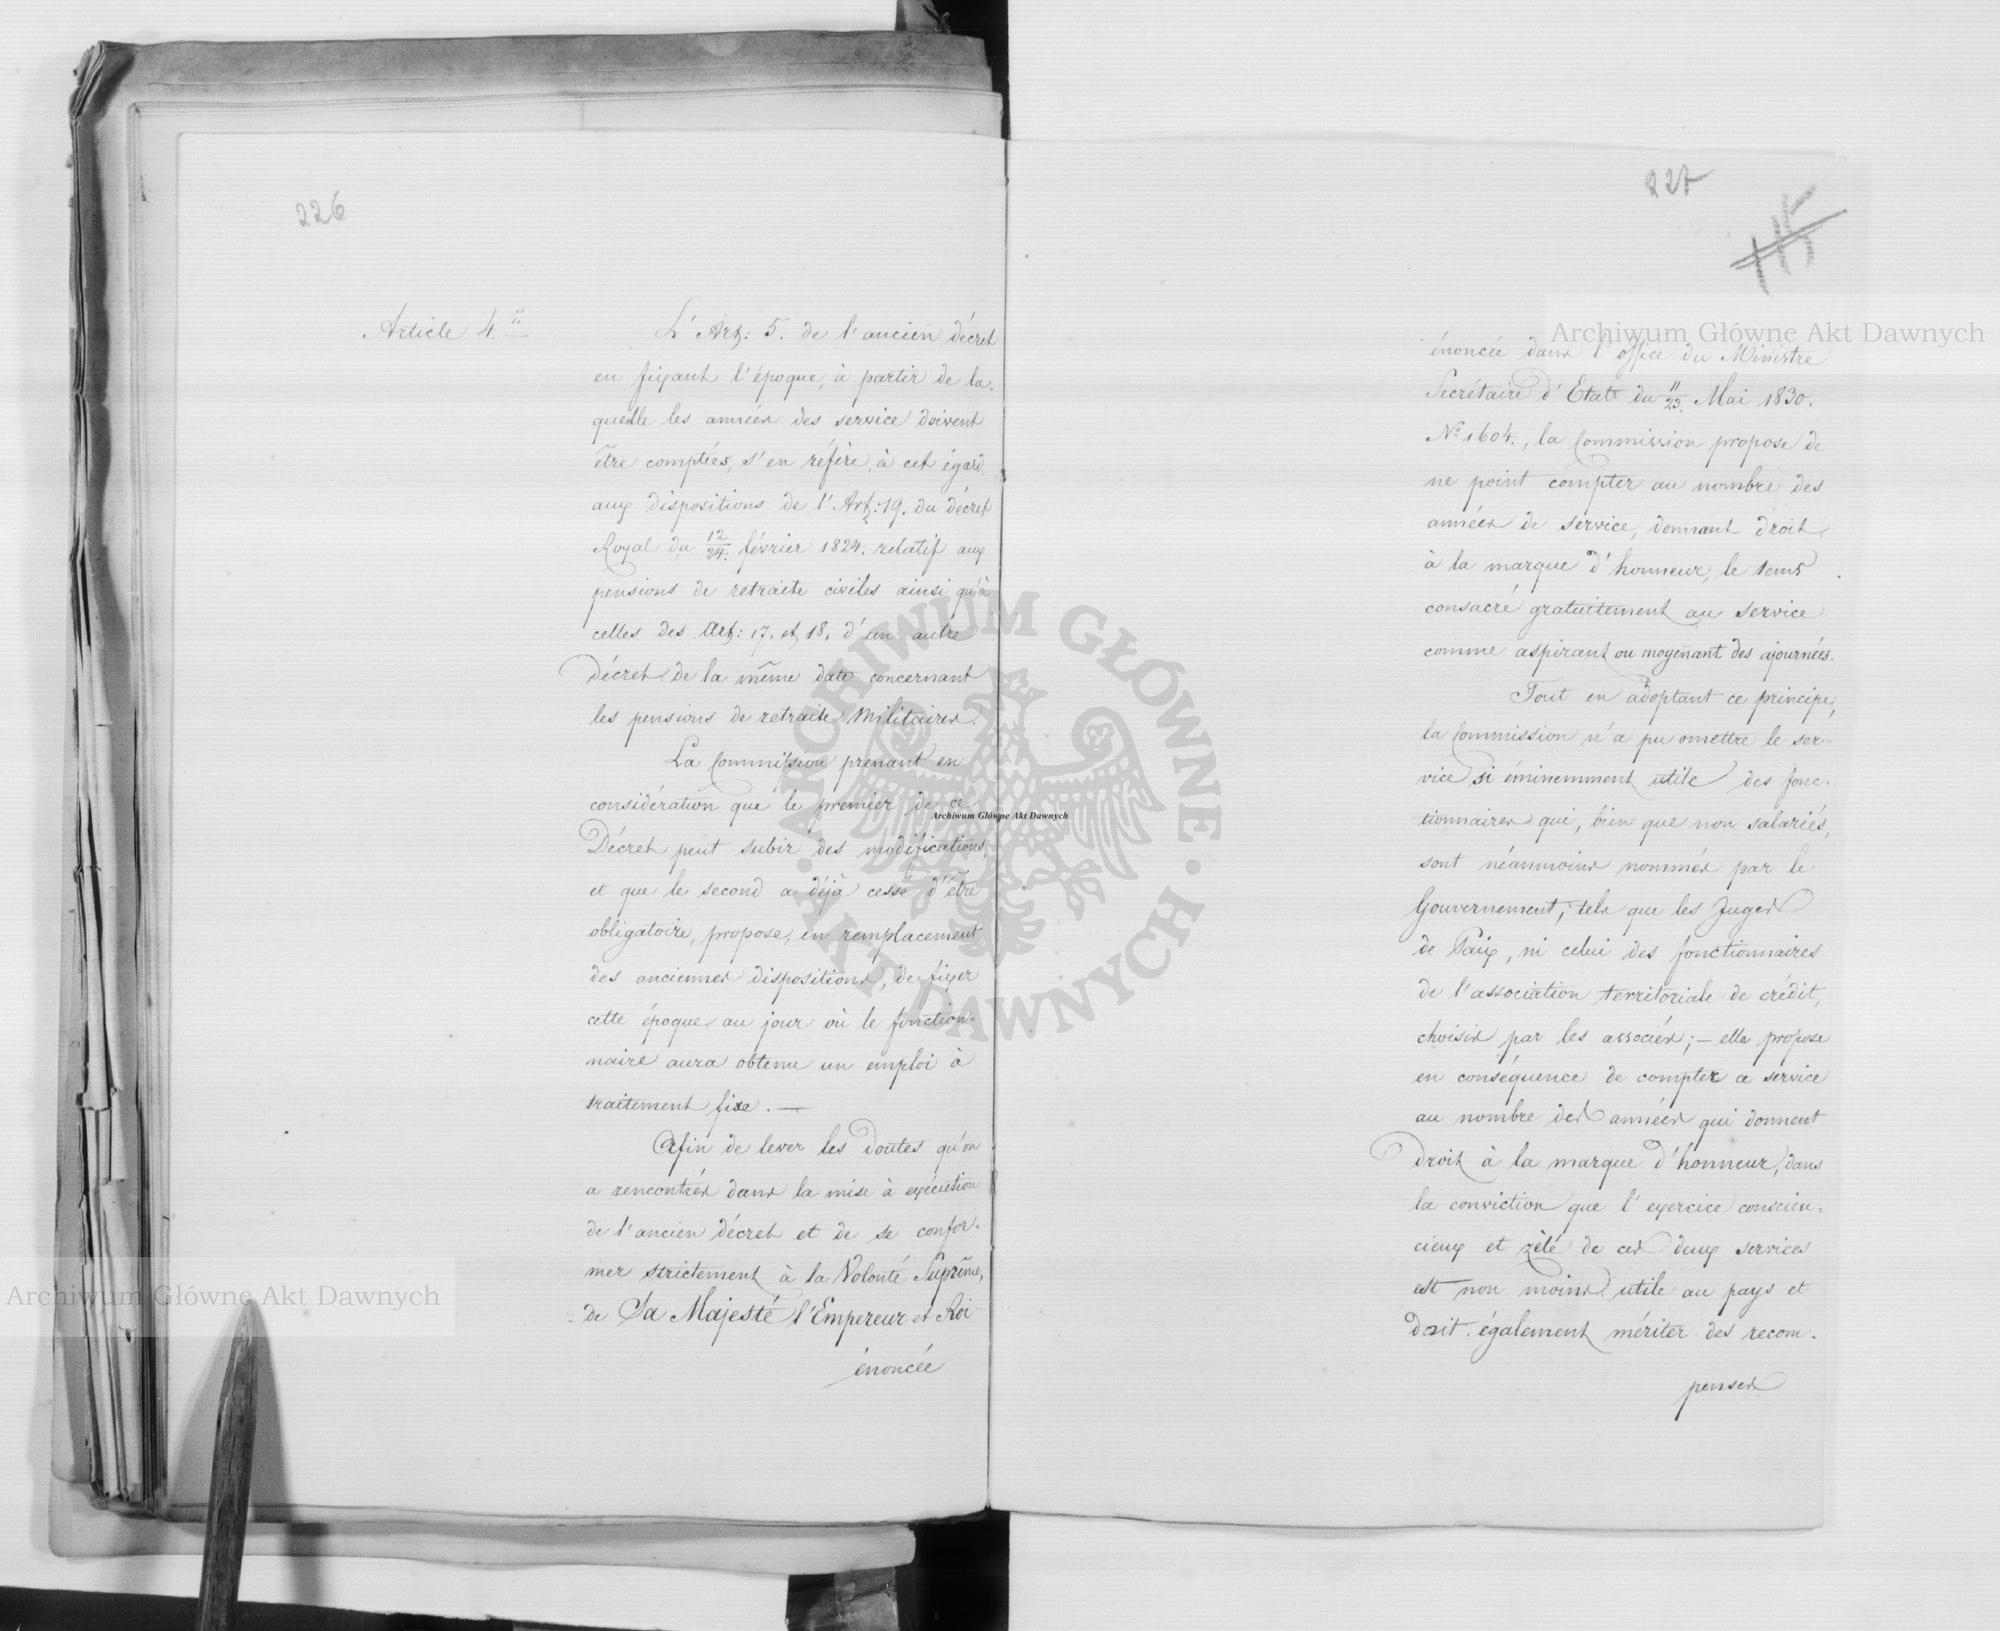 226
Article 4.
L'Art: 5. de l'ancien décret
en fixant l'époque, à partir de la-
quelle les années des service doivent
être comptées, s'en réfère, à cet égard,
aux dispositions de l'Art: 19. du décret
Royal du 12/24. février 1824. relatif aux
pensions de retraite civiles ainsi qu'à
celles des Art: 17. et 18. d'un autre
décret de la même date concernant
les pensions de retraite militaires.
La Commission prenant en
considération que le premier de ce
Décret peut subir des modifications,
et que le second a déjà cessé d'être
obligatoire, propose, en remplacement
des anciennes dispositions, de fixer
cette époque au jour où le fonction-
naire aura obtenu un emploi à
traitement fixe. —
Afin de lever les doutes qu'on
a rencontrés dans la mise à exécution
de l'ancien décret et de se confor-
mer strictement à la Volonté Suprême,
de Sa Majesté l'Empereur et Roi
énoncée
227
énoncée dans l'office du Ministre
Secrétaire d'Etat du 11/23. Mai 1830.
No 1604., la Commission propose de
ne point compter au nombre des
années de service, donnant droit
à la marque d'honneur, le tems
consacré gratuitement au service
comme aspirant ou moyennant des ajournées.
Tout en adoptant ce principe,
la Commission n'a pu omettre le ser-
vice si éminemment utile des fonc-
tionnaires qui, bien que non salariés,
sont néanmoins nommés par le
Gouvernement, tels que les Juges
de Paix, ni celui des fonctionnaires
de l'association territoriale de crédit,
choisis par les associés; — elle propose
en conséquence de compter ce service
au nombre des années qui donnent
droit à la marque d'honneur, dans
la conviction que l'exercice conscien-
cieux et zèlé de ces deux services
est non moins utile au pays et
doit également mériter des recom-
penses
Archiwum Główne Akt Dawnych
Archiwum Główne Akt Dawnych
Archiwum Główne Akt Dawnych
ARCHIWUM GŁÓWNE AKT DAWNYCH